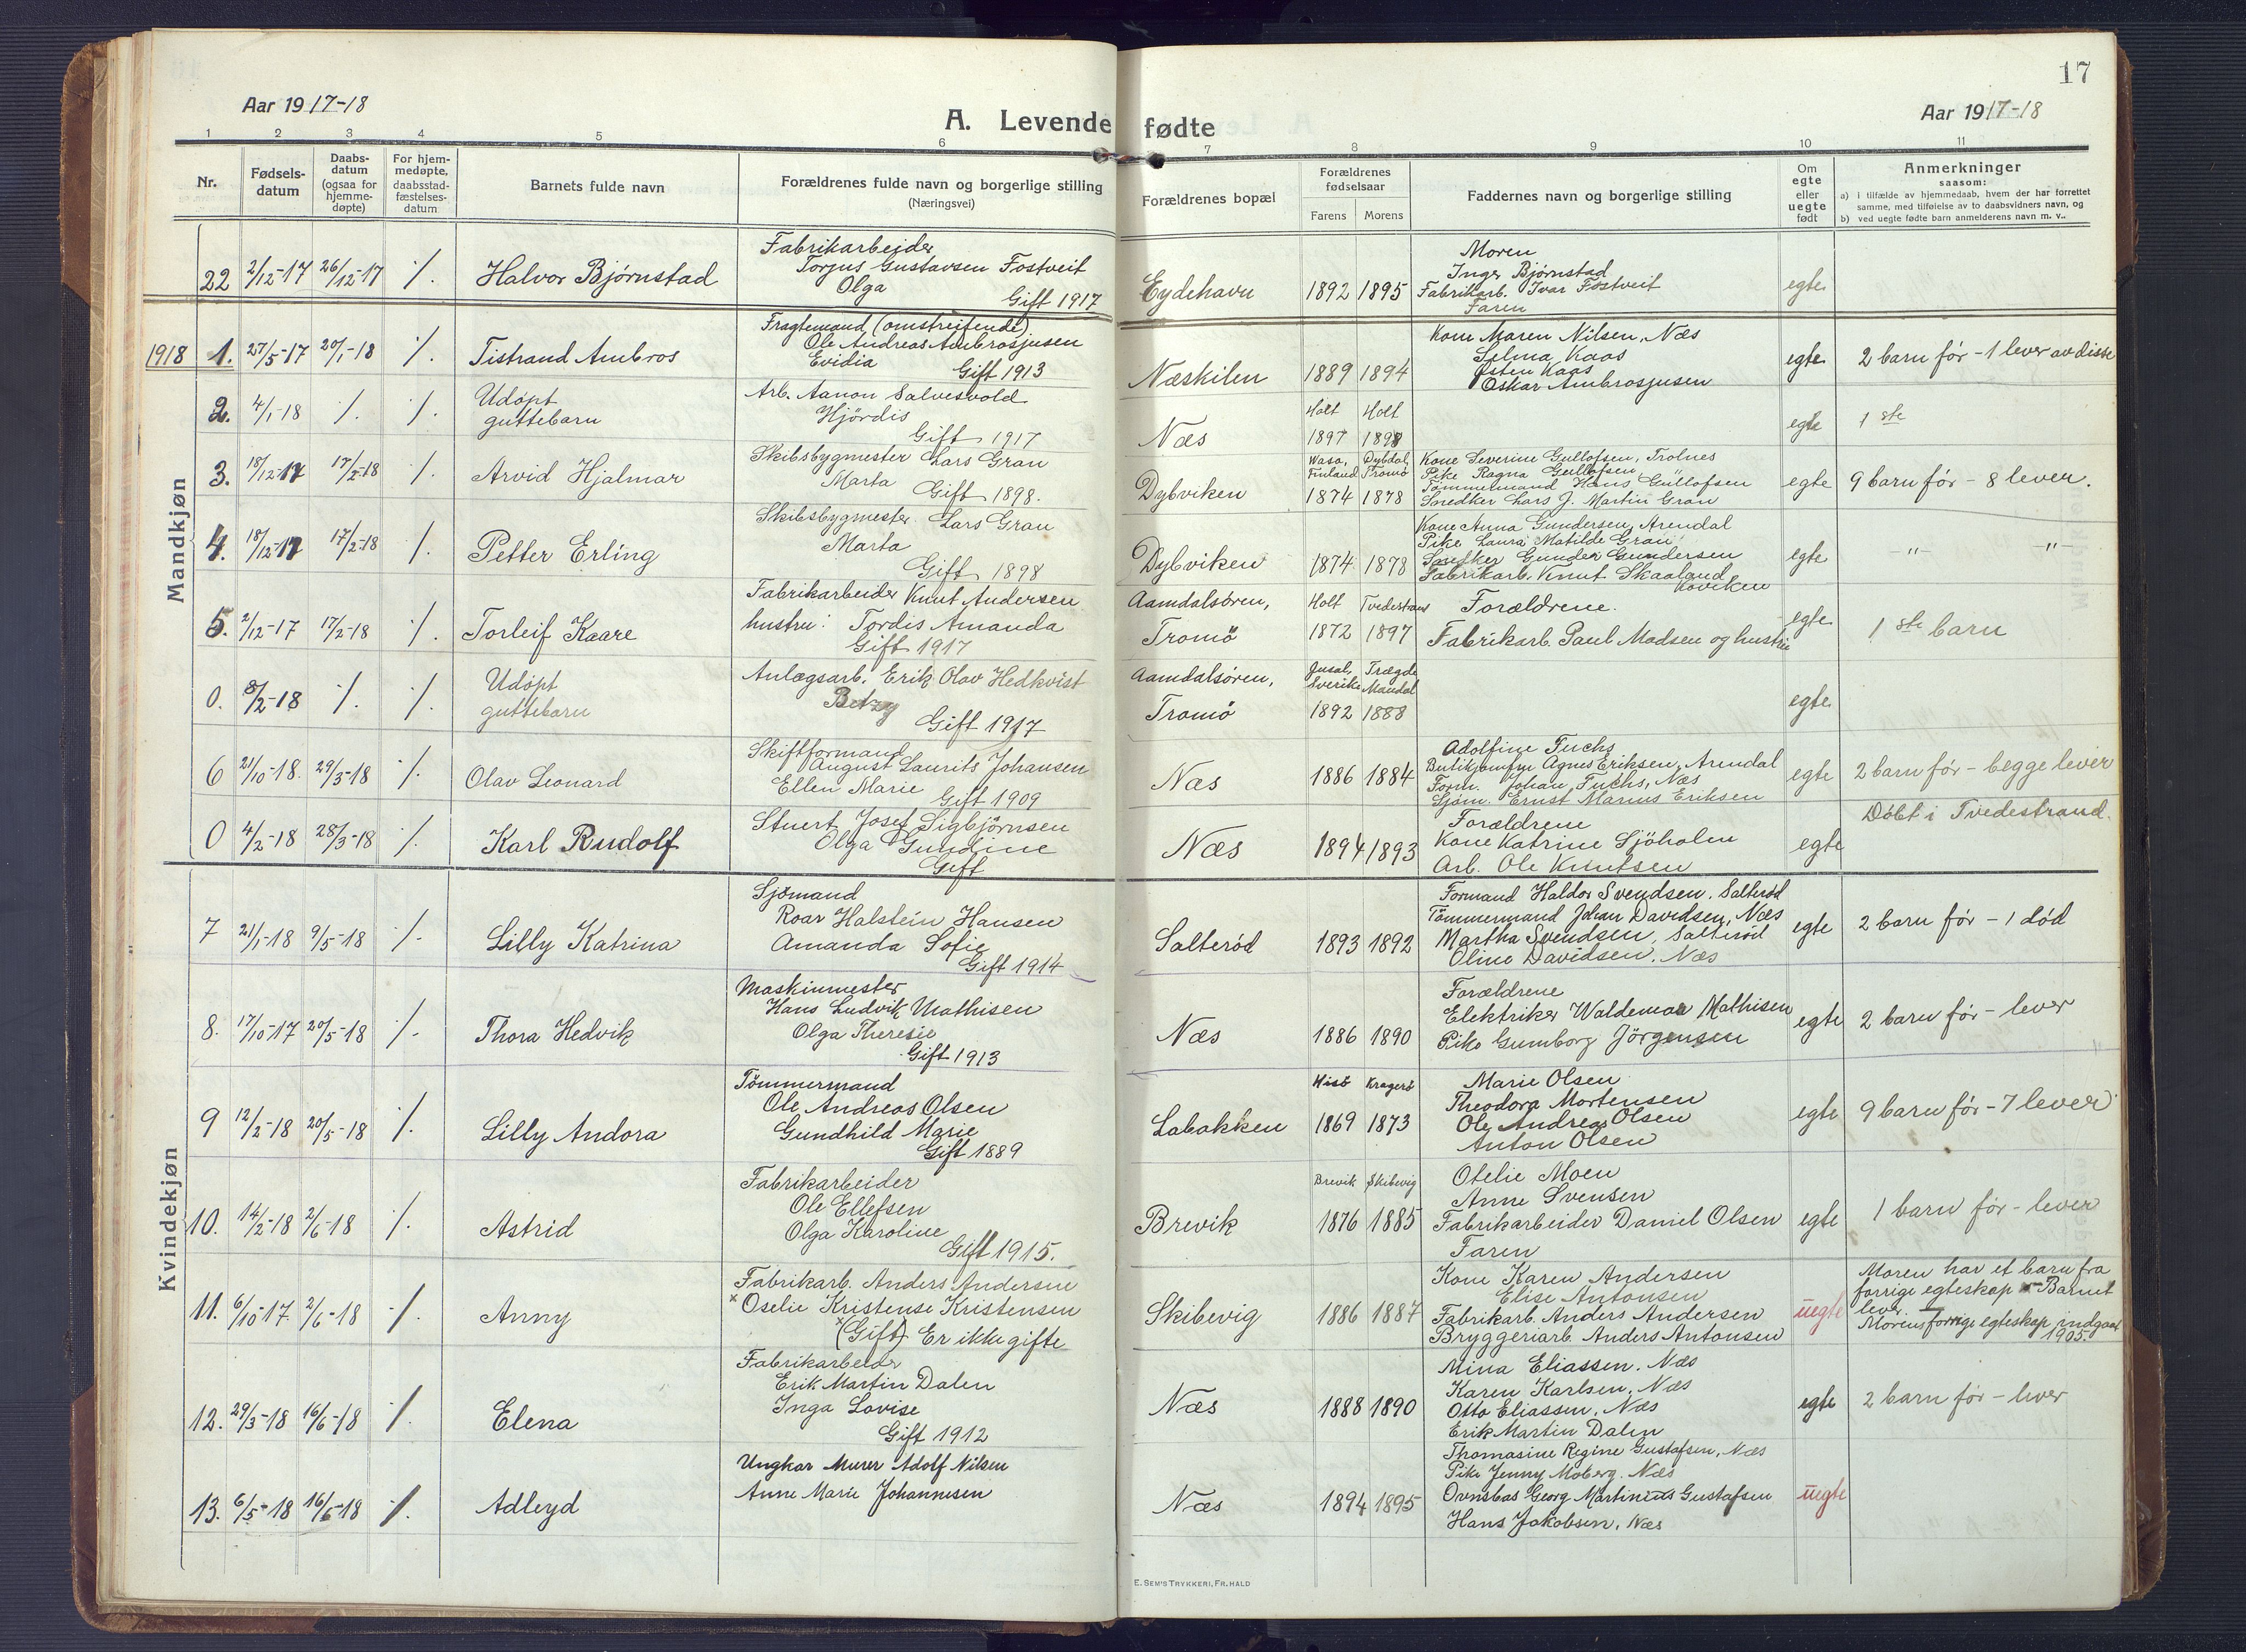 17
Aar 1917-18
A. Levende fødte
Aar 1917-18
1 2 3 4 5 6 7 8 9 10 11
Nr.
Fødsels-
datum
Daabs-
datum
(ogsaa for
hjemme-
døpte)
For hjem-
medøpte,
daabsstad-
fæstelses-
datum
Barnets fulde navn
Forældrenes fulde navn og borgerlige stilling
(Næringsvei)
Forældrenes bopæl
Forældrenes
fødselsaar
Farens Morens
Faddernes navn og borgerlige stilling
Om
egte
eller
uegte
født
Anmerkninger
saasom:
a) i tilfælde av hjemmedaab, hvem der har forrettet
samme, med tilføielse av to daabsvidners navn, og
b) ved uegte fødte barn anmelderens navn m. v..
Mandkjøn
22 2/12-17 26/12-17 ⁒ Halvor Bjørnstad
Fabrikarbeider
Torjus Gustavsen Fostveit
Olga
Gift 1917
Eydehavn 1892 1895
Moren
Inger Bjørnstad
Fabrikarb. Ivar Fostveit
Faren
egte
1918 1. 27/5-17 20/1-18 ⁒ Tistrand Ambros
Fragtemand (omstreifende)
Ole Andreas Ambrosjusen
Evidia Gift 1913
Næskilen 1889 1894
Kone Maren Nilsen, Næs
Selma Kaas
Østen Kaas
Oskar Ambrosjusen
egte 2 barn før - 1 lever av disse
2. 4/1-18 ⁒ ⁒ Udøpt
guttebarn
Arb. Aanon Salvesvold
Hjördis
Gift 1917
Næs
Holt Holt
1897 1898
egte 1 ste
3. 18/12-17 17/2-18 ⁒ Arvid Hjalmar
Skibsbygmester Lars Gran
Marta
Gift 1898.
Dybviken
Wasa, Dybdal,
Finland Tromø
1874 1878
Kone Severine Gullofsen, Trolnes
Pike Ragna Gullofsen "
Tømmermand Hans Gullofsen
Snedker Lars J. Martin Gran
egte 9 barn før - 8 lever.
4. 18/12-17 17/2-18 ⁒ Petter Erling
Skibsbygmester Lars Gran
Marta
Gift 1898
Dybviken 1874 1878
Kone Anna Gundersen, Arendal
Pike Laura Matilde Gran
Snedker Gunder Gundersen
Fabrikarb. Knut Skaaland
egte -"- -"-
5. 2/12-17 17/2-18 ⁒ Torleif Kaare
Fabrikarbeider Knut Andersen
hustru: Tordis Amanda
Gift 1917
Aamdalsøren,
Tromö
Holt
1872 1897
Forældrene.
Fabrikarb. Paul Madsen og hustru
egte 1 ste barn
0. 8/2-18 ⁒ ⁒ Udøpt
guttebarn
Anlægsarb. Erik Olav Hedkvist
Betzy
Gift 1917
Aamdalsøren,
Tromö
Trægde
Sverike Mandal
1892 1888
egte
6 21/10-18. 29/3-18 ⁒ Olav Leonard
Skiftformand
August Laurits Johansen
Ellen Marie
Gift 1909
Næs 1886 1884
Adolfine Fuchs
Butikjomfru Agnes Eriksen, Arendal
Form. Johan Fuchs, Næs
Sjøm. Ernst Marius Eriksen
egte 2 barn før - begge lever
0 4/2-18 28/3-18 ⁒ Karl Rudolf
Stuert Josef Sigbjörnsen
Olga Gundine
Gift
Næs 1894 1893
Forældrene
Kone Katrine Sjöholm
Arb. Ole Knutsen
egte Döbt i Tvedestrand.
Kvindekjøn
7 21/1-18 9/5-18 ⁒ Lilly Katrina
Sjømand
Roar Halstein Hansen
Amanda Sofie
Gift 1914
Salterød 1893 1892
Formand Haldor Svendsen, Salterød
Tömmermand Johan Davidsen, Næs
Martha Svendsen, Salterød
Oline Davidsen, Næs
egte 2 barn før - 1 død
8. 17/10-17 20/5-18 ⁒ Thora Hedvik
Maskinmester
Hans Ludvik Mathisen
Olga Theresie
Gift 1913
Næs 1886 1890
Forældrene
Elektriker Waldemar Mathisen
Pike Gumborg Jörgensen
egte 2 barn før - lever
9 12/2-18 20/5-18 ⁒ Lilly Andora
Tömmermand
Ole Andreas Olsen
Gundhild Marie
Gift 1889
Labakken
Hisö Kragerö
1869 1873
Marie Olsen
Theodora Mortensen
Ole Andreas Olsen
Anton Olsen
egte 9 barn før - 7 lever
10. 14/2-18 2/6-18 ⁒ Astrid
Fabrikarbeider
Ole Ellefsen
Olga Karoline
Gift 1915.
Brevik
Brevik Skibevig
1876 1885
Otelie Moen
Anne Svensen
Fabrikarbeider Daniel Olsen
Faren
egte 1 barn før - lever
11. 6/10-17. 2/6-18 ⁒ Anny
Fabrikarb. Anders Andersen
x Oselie Kristense Kristensen
x (Gift) Er ikke gifte
Skibevig 1886 1887
Kone Karen Andersen
Elise Antonsen
Fabrikarb. Anders Andersen
Bryggeriarb. Anders Antonsen
uegte
Moren har et barn fra
forrige egteskap - Barnet
lever.
Morens forrige egteskap indgaat
1905.
12. 29/3-18 16/6-18 ⁒ Elena
Fabrikarbeider
Erik Martin Dalen
Inga Lovise
Gift 1912
Næs 1888 1890
Mina Eliassen, Næs
Karen Karlsen, Næs
Otto Eliassen, Næs
Erik Martin Dalen
egte 2 barn før - lever
13. 6/5-18 16/6-18 ⁒ Adleyd
Ungkar Murer Adolf Nilsen
Anne Marie Johannesen
Næs 1894 1895
Thomasine Regine Gustafsen, Næs
Pike Jenny Moberg, Næs
Ovnsbas Georg Martinius Gustafsen
Hans Jakobsen, Næs
uegte
E. SEM'S TRYKKERI, FR. HALD